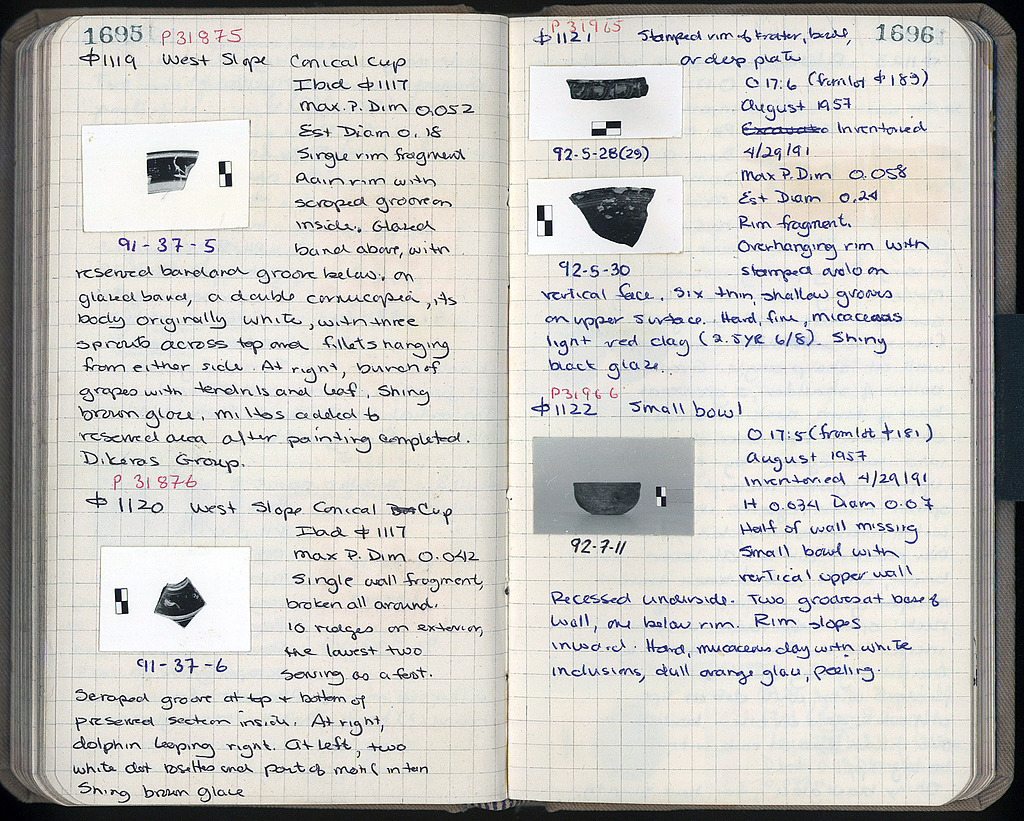 1695 P 31875
$1119 West Slope Conical Cup
Ibid $1117
Max. P. Dim 0.052
Est Diam 0.18
Single rim fragment
Plain rim with
scraped groove on
inside. Glazed
band above, with
91-37-5
reserved band and groove below. On
glazed band, a double cornucopia, its
body originally white, with three
sprouts across top and fillets hanging
from either side. At right, bunch of
grapes with tendrils and leaf. Shiny
brown glaze. miltos added to
reserved area after painting completed.
Dikeras Group.
P 31876
$1120 West Slope Conical Cup
Ibid $1117
Max P. Dim. 0.042
Single wall fragment,
broken all around.
10 ridges on exterior,
the lowest two
serving as a foot.
91-37-6
Scraped groove at top + bottom of
preserved section inside. At right,
dolphin leaping right. At left, two
white dot rosettes and part of motif in tan
Shiny brown glaze
P 31965
$1121 Stamped rim of krater, bowl, 1696
or deep plate
O 17:6 (from lot $183)
August 1957
Inventoried
4/29/91
92-5-28(29)
Max P. Dim 0.058
Est Diam 0.24
Rim fragment.
Overhanging rim with
stamped ovolo on
92-5-30
vertical face. Six thin, shallow grooves
on upper surface. Hard, fine, micaceous
light red clay (2.5YR 6/8). Shiny
black glaze.
P31966
$1122 Small bowl
O 17:5 (from lot $181)
August 1957
Inventoried 4/29/91
H 0.034 Diam 0.07
Half of wall missing
Small bowl with
vertical upper wall
92-7-11
Recessed underside. Two grooves at base of
wall, one below rim. Rim slopes
inward. Hard, mucaceous clay with white
inclusions, dull orange glaze, peeling.